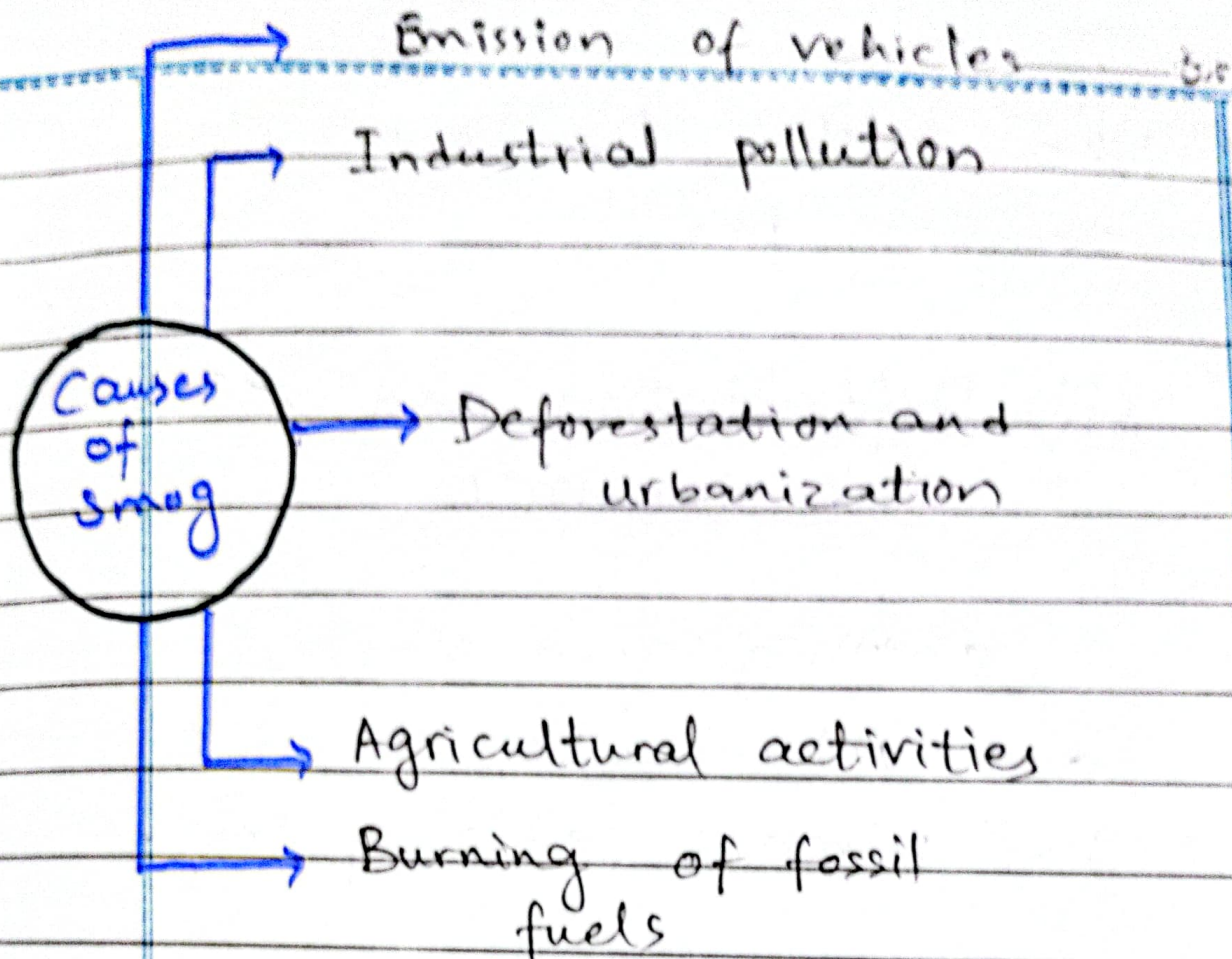 Emission of vehicles
Industrial pollution
Causes
of
smog
Deforestation and
urbanization
Agricultural activities
Burning of fossil
fuels